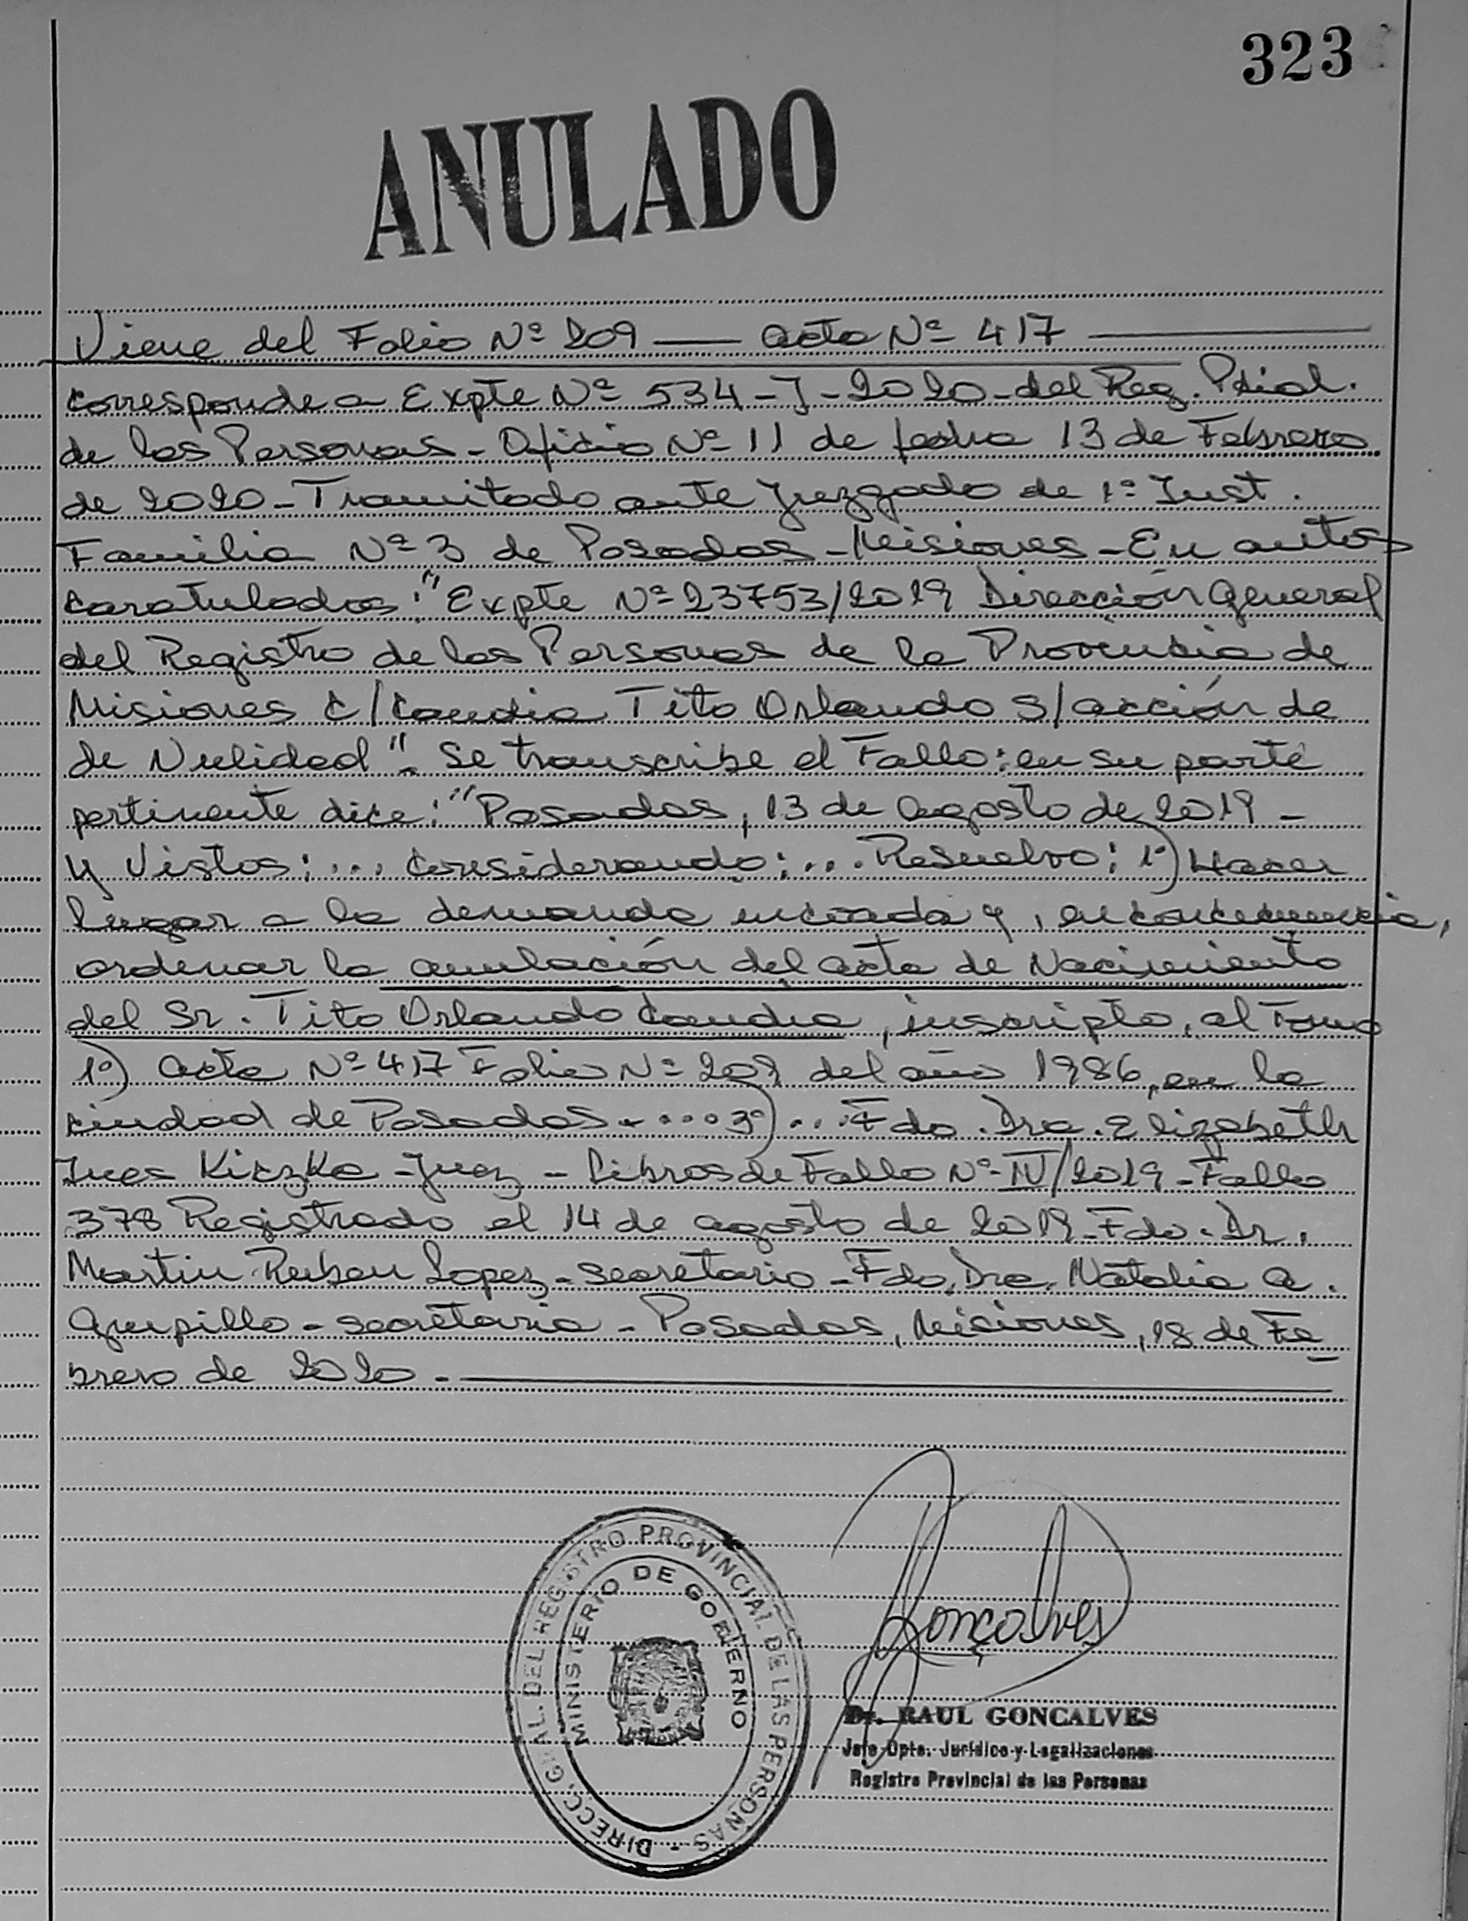 323
ANULADO
Viene del Folio Nº 209 — acta Nº 417 —
corresponde a Expte Nº 534-J-2020-del Reg. Pcial.
de las Personas - Oficio Nº 11 de fecha 13 de Febrero
de 2020 - Tramitado ante Juzgado de 1º Inst.
Familia Nº 3 de Posadas - Misiones - En autos
caratulados: "Expte Nº 23753/2019 Dirección General
del Registro de las Personas de la Provincia de
Misiones c/ Candia Tito Orlando s/ acción de
de Nulidad". Se transcribe el Fallo: en su parte
pertinente dice: "Posadas, 13 de agosto de 2019 -
y Vistos: ... Considerando: ... Resuelvo: 1º) Hacer
lugar a la demanda incoada y, en consecuencia,
ordenar la anulación del acta de Nacimiento
del Sr. Tito Orlando Candia, inscripto, al Tomo
1º) Acta Nº 417 Folio Nº 209 del año 1986, en la
ciudad de Posadas - .... 3º) ... Fdo. Dra. Elizabeth
Ines Kiczka - Juez - Libros de Fallo Nº IV/2019 - Fallo
378 Registrado el 14 de agosto de 2019 - Fdo. Dr.
Martin Ruben Lopez - secretario - Fdo. Dra. Natalia A.
secretaria - Posadas, Misiones, 18 de Fe_
brero de 2020. -
DIRECC. GRAL. DEL REGISTRO PROVINCIAL DE LAS PERSONAS -
MINISTERIO DE GOBIERNO
Gonçalves
Dr. RAUL GONCALVES
Jefe Dpto. Jurídico y Legalizaciones
Registro Provincial de las Personas